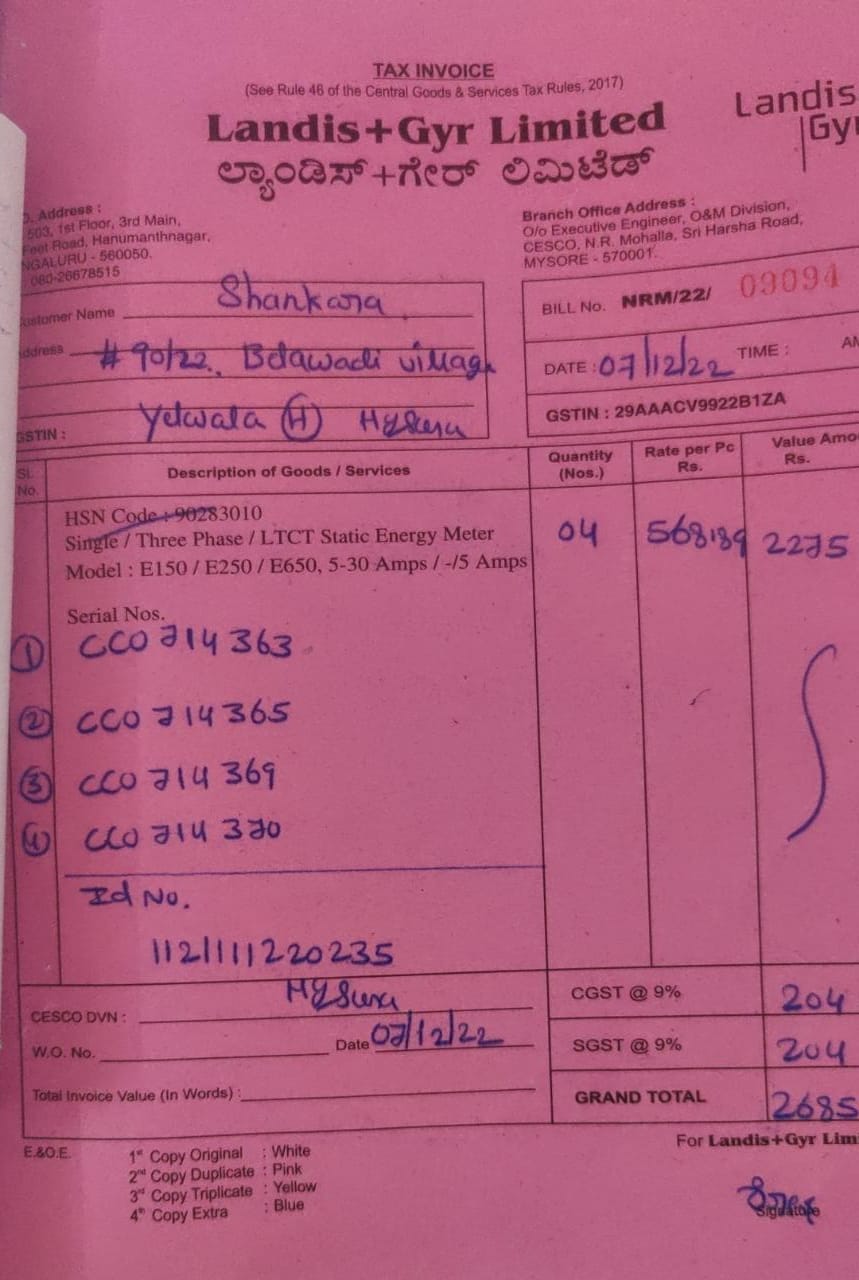 TAX INVOICE
(See Rule 46 of the Central Goods & Services Tax Rules, 2017)
Landis+Gyr Limited
ಲ್ಯಾಂಡಿಸ್+ಗೇರ್ ಲಿಮಿಟೆಡ್
Landis
Gy
Address :
503, 1st Floor, 3rd Main,
Feet Road, Hanumanthnagar,
NGALURU - 560050.
080-26678515
Branch Office Address :
O/o Executive Engineer, O&M Division,
CESCO, N.R. Mohalla, Sri Harsha Road,
MYSORE - 570001.
ustomer Name Shankara
ddress # 90/22, Belawadi village
Yelwala (H) Mysuru
GSTIN :
BILL No. NRM/22/ 09094
DATE : 07/12/22 TIME : AM
GSTIN : 29AAACV9922B1ZA
Sl. No. Description of Goods / Services Quantity (Nos.) Rate per Pc Rs. Value Amo Rs.
HSN Code : 90283010
Single / Three Phase / LTCT Static Energy Meter 04 568.189 2275
Model : E150 / E250 / E650, 5-30 Amps / -/5 Amps
Serial Nos.
① CCO 714 363
② CCO 714 365
③ CCO 714 369
④ CCO 714 370
Id No.
112/111220235
CESCO DVN : Mysuru
W.O. No. Date 07/12/22
Total Invoice Value (In Words) :
CGST @ 9% 204
SGST @ 9% 204
GRAND TOTAL 2685
E.&O.E.
1st Copy Original : White
2nd Copy Duplicate : Pink
3rd Copy Triplicate : Yellow
4th Copy Extra : Blue
For Landis+Gyr Lim
Signature